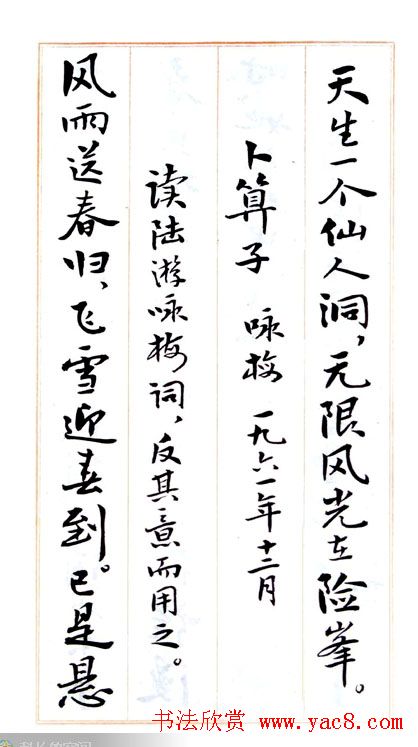 天生一个仙人洞，无限风光在险峯。
卜算子 咏梅 一九六一年十二月
读陆游咏梅词，反其意而用之。
风雨送春归、飞雪迎春到。已是悬
书法欣赏 www.yac8.com